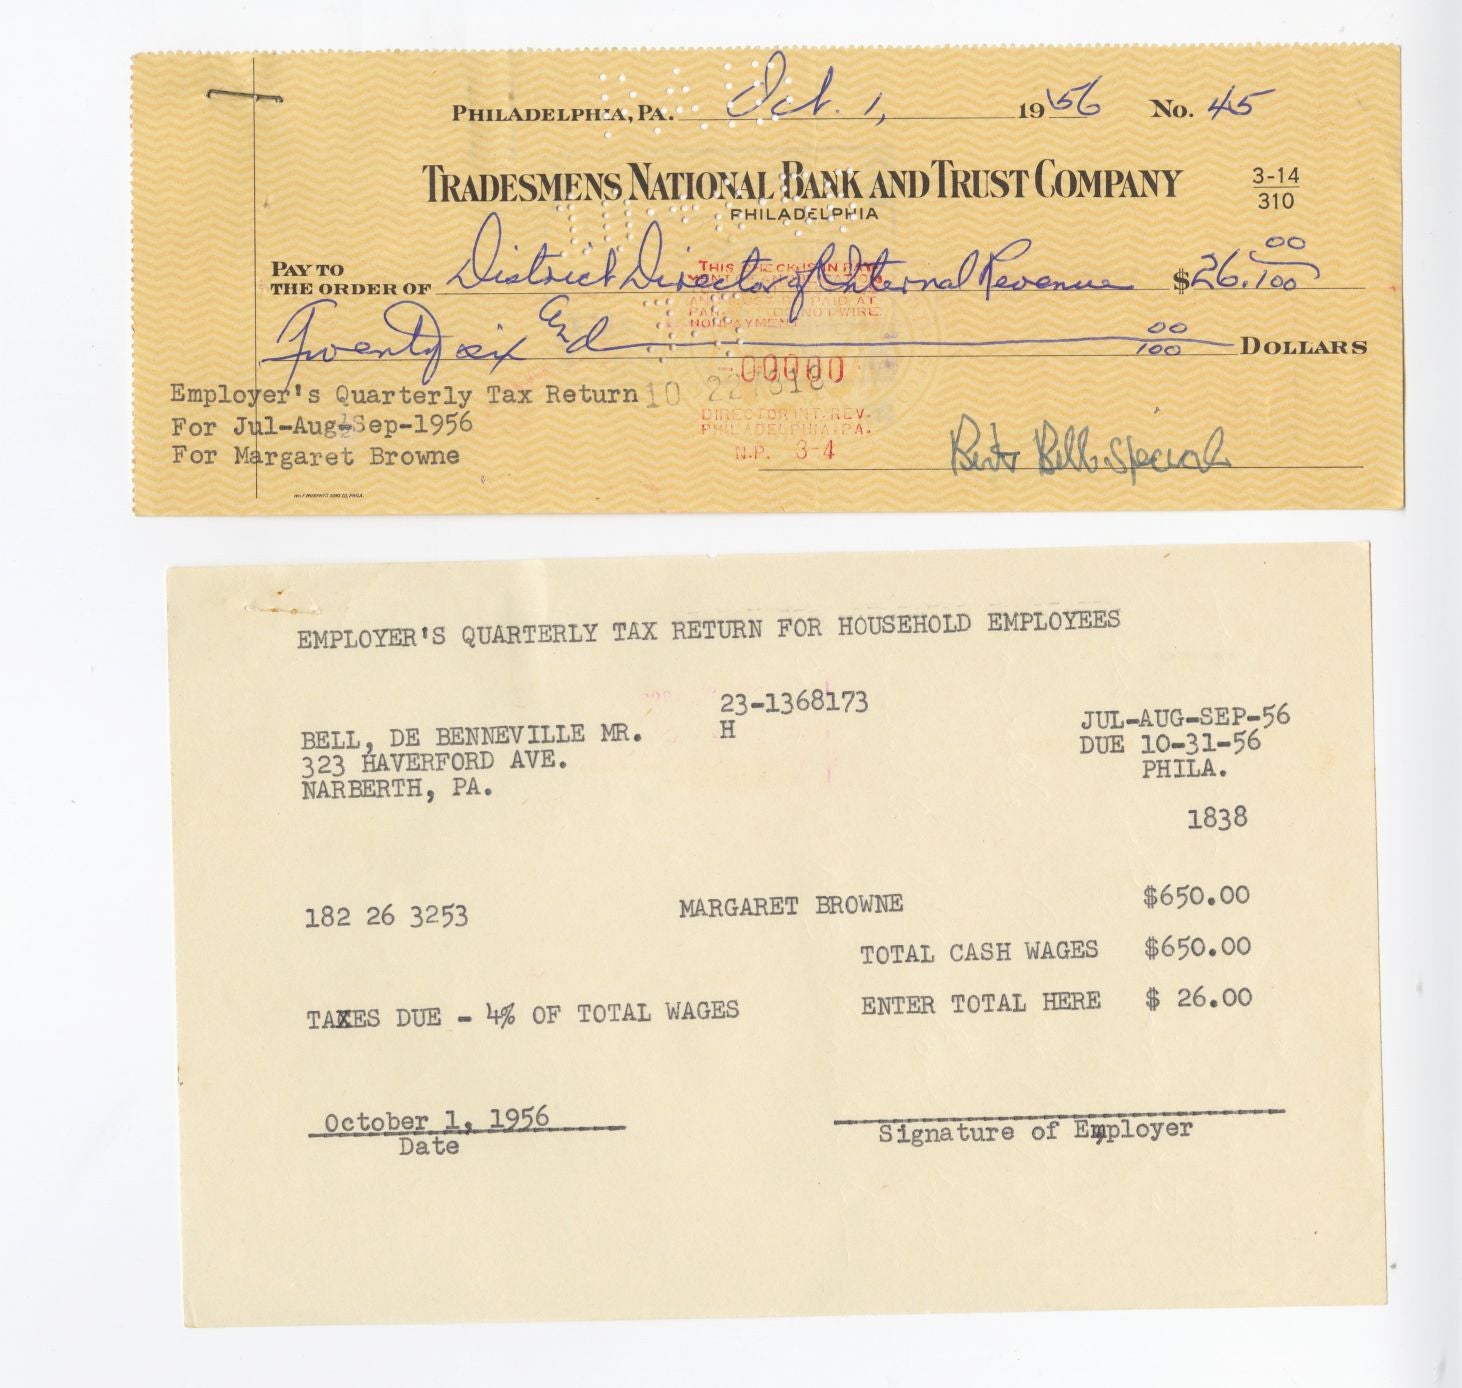 PHILADELPHIA, PA. Oct. 1, 1956 No. 45
TRADESMENS NATIONAL BANK AND TRUST COMPANY
3-14
310
PHILADELPHIA
PAY TO
THE ORDER OF District Director of Internal Revenue $26.00/100
THIS CHECK IS IN PAY-
Twenty six and 00/100 DOLLARS
NONPAYMENT
00000
Employer's Quarterly Tax Return
10 22
For Jul-Aug-Sep-1956
For Margaret Browne
DIRECTOR INT. REV.
PHILADELPHIA, PA.
N.P. 3-4
Bert Bell Special
EMPLOYER'S QUARTERLY TAX RETURN FOR HOUSEHOLD EMPLOYEES
23-1368173
BELL, DE BENNEVILLE MR. H JUL-AUG-SEP-56
323 HAVERFORD AVE. DUE 10-31-56
NARBERTH, PA. PHILA.
1838
182 26 3253 MARGARET BROWNE $650.00
TOTAL CASH WAGES $650.00
TAXES DUE - 4% OF TOTAL WAGES ENTER TOTAL HERE $ 26.00
October 1, 1956
Date
Signature of Employer